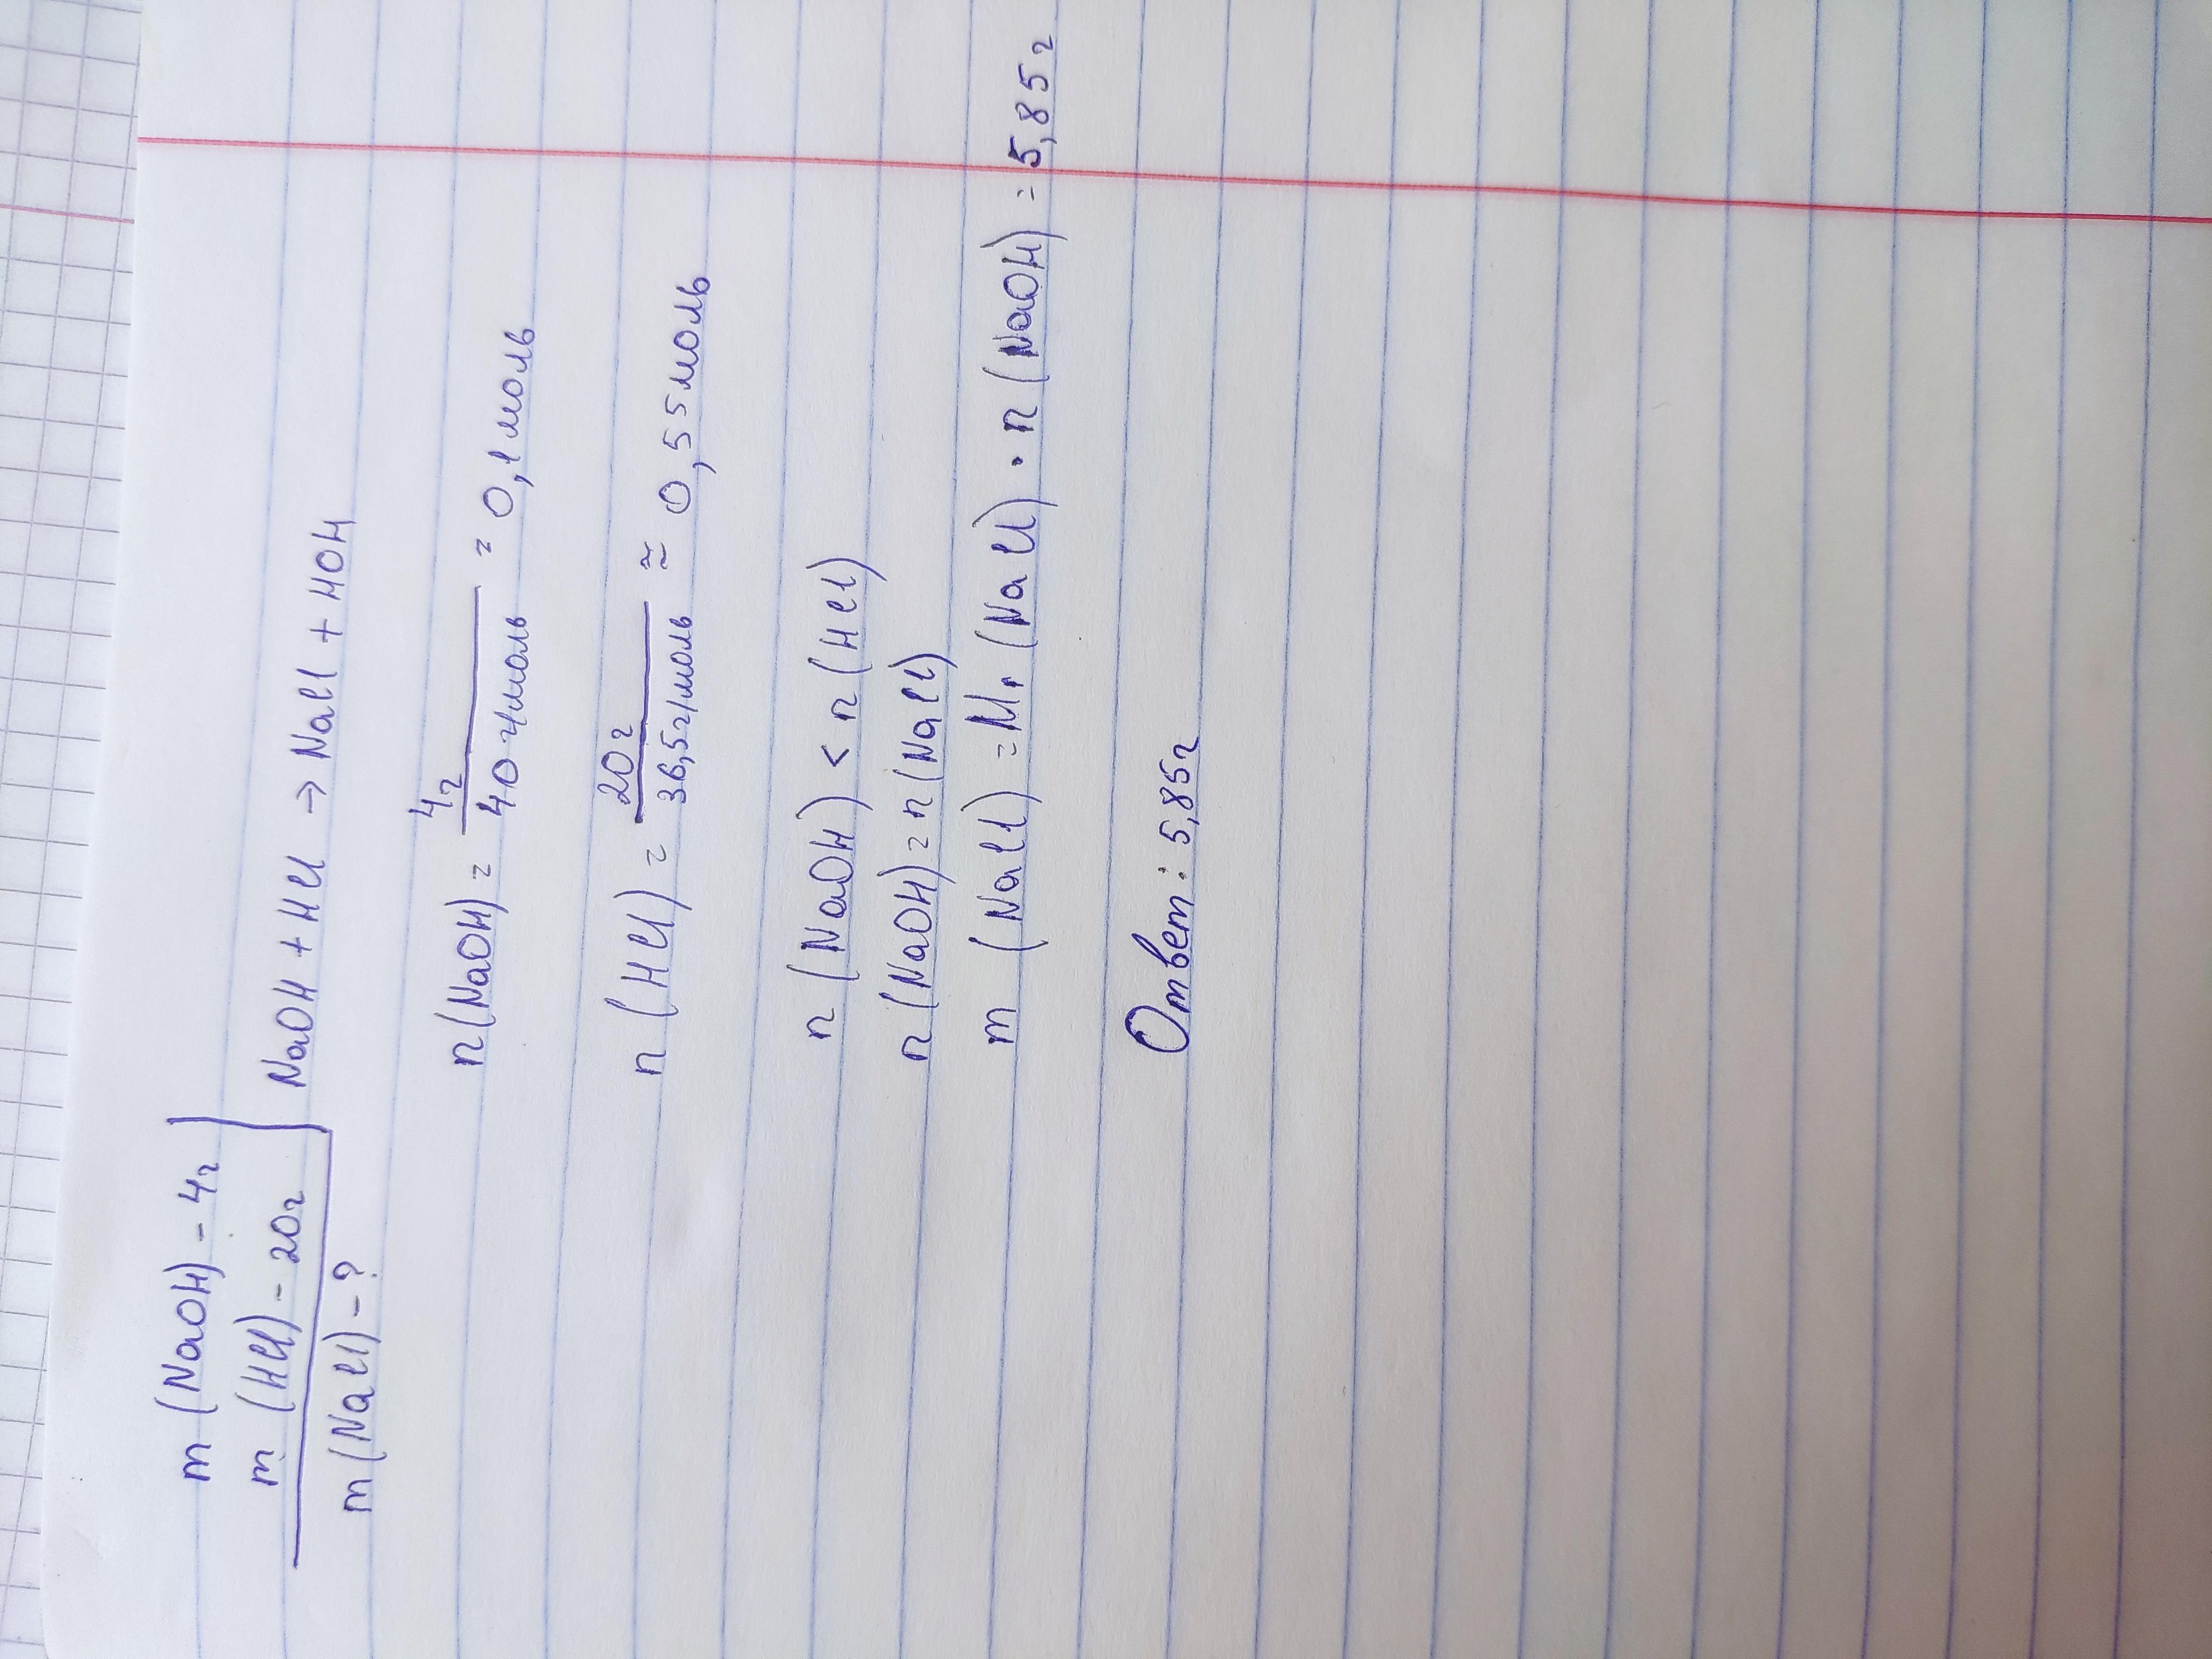 m (NaOH) - 4г
m (HCl) - 20г
m (NaCl) - ?
NaOH + HCl → NaCl + HOH
n(NaOH) = 4г / 40 г/моль = 0,1 моль
n (HCl) = 20г / 36,5г/моль ≈ 0,55 моль
n (NaOH) < n (HCl)
n (NaOH) = n (NaCl)
m (NaCl) = Mr (NaCl) · n (NaOH) = 5,85г
Ответ: 5,85г